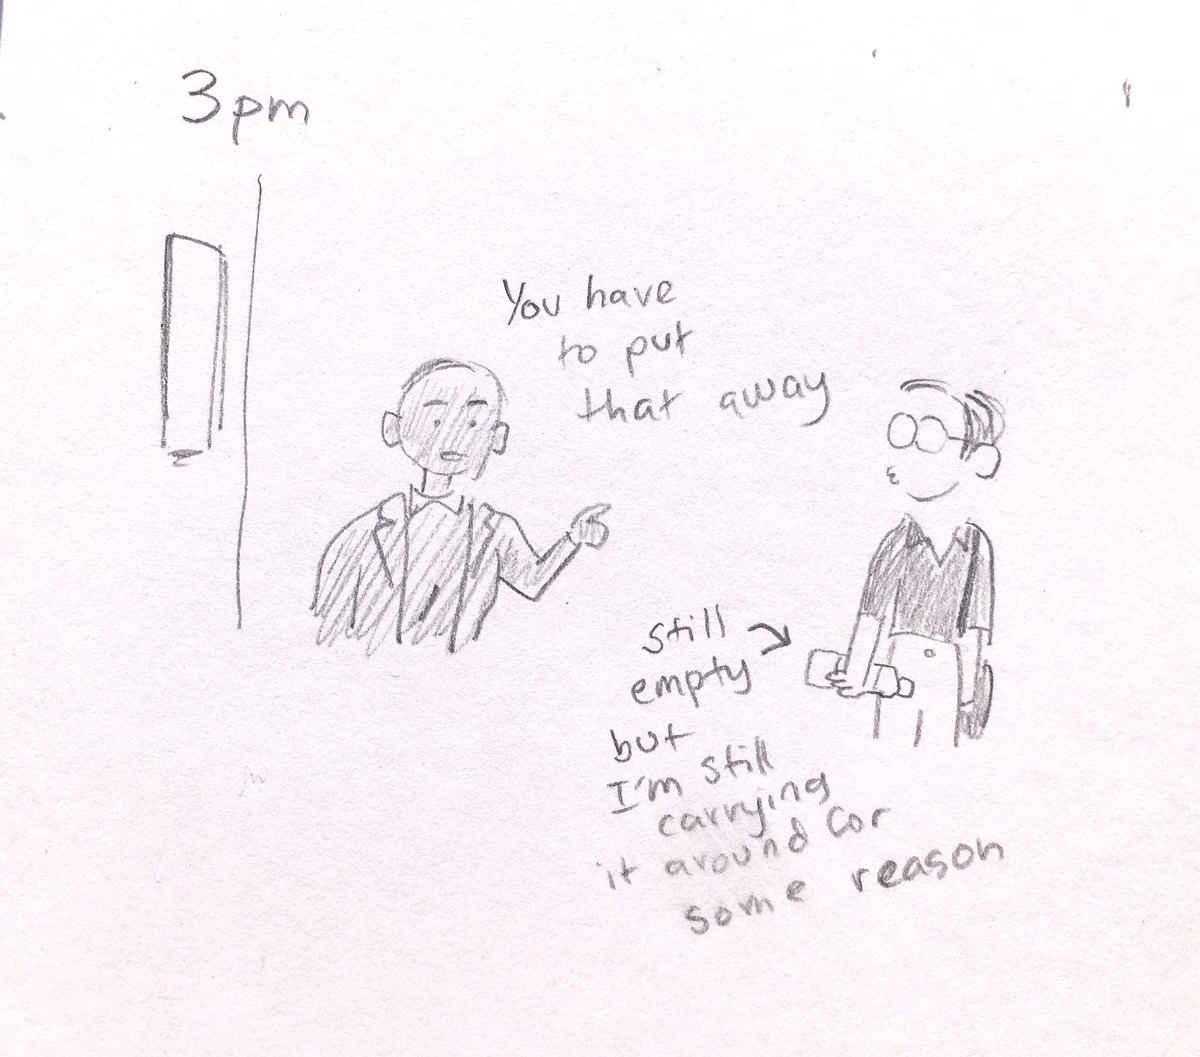 3pm
You have
to put
that away
still
empty
but
I'm still
carrying
it around for
some reason